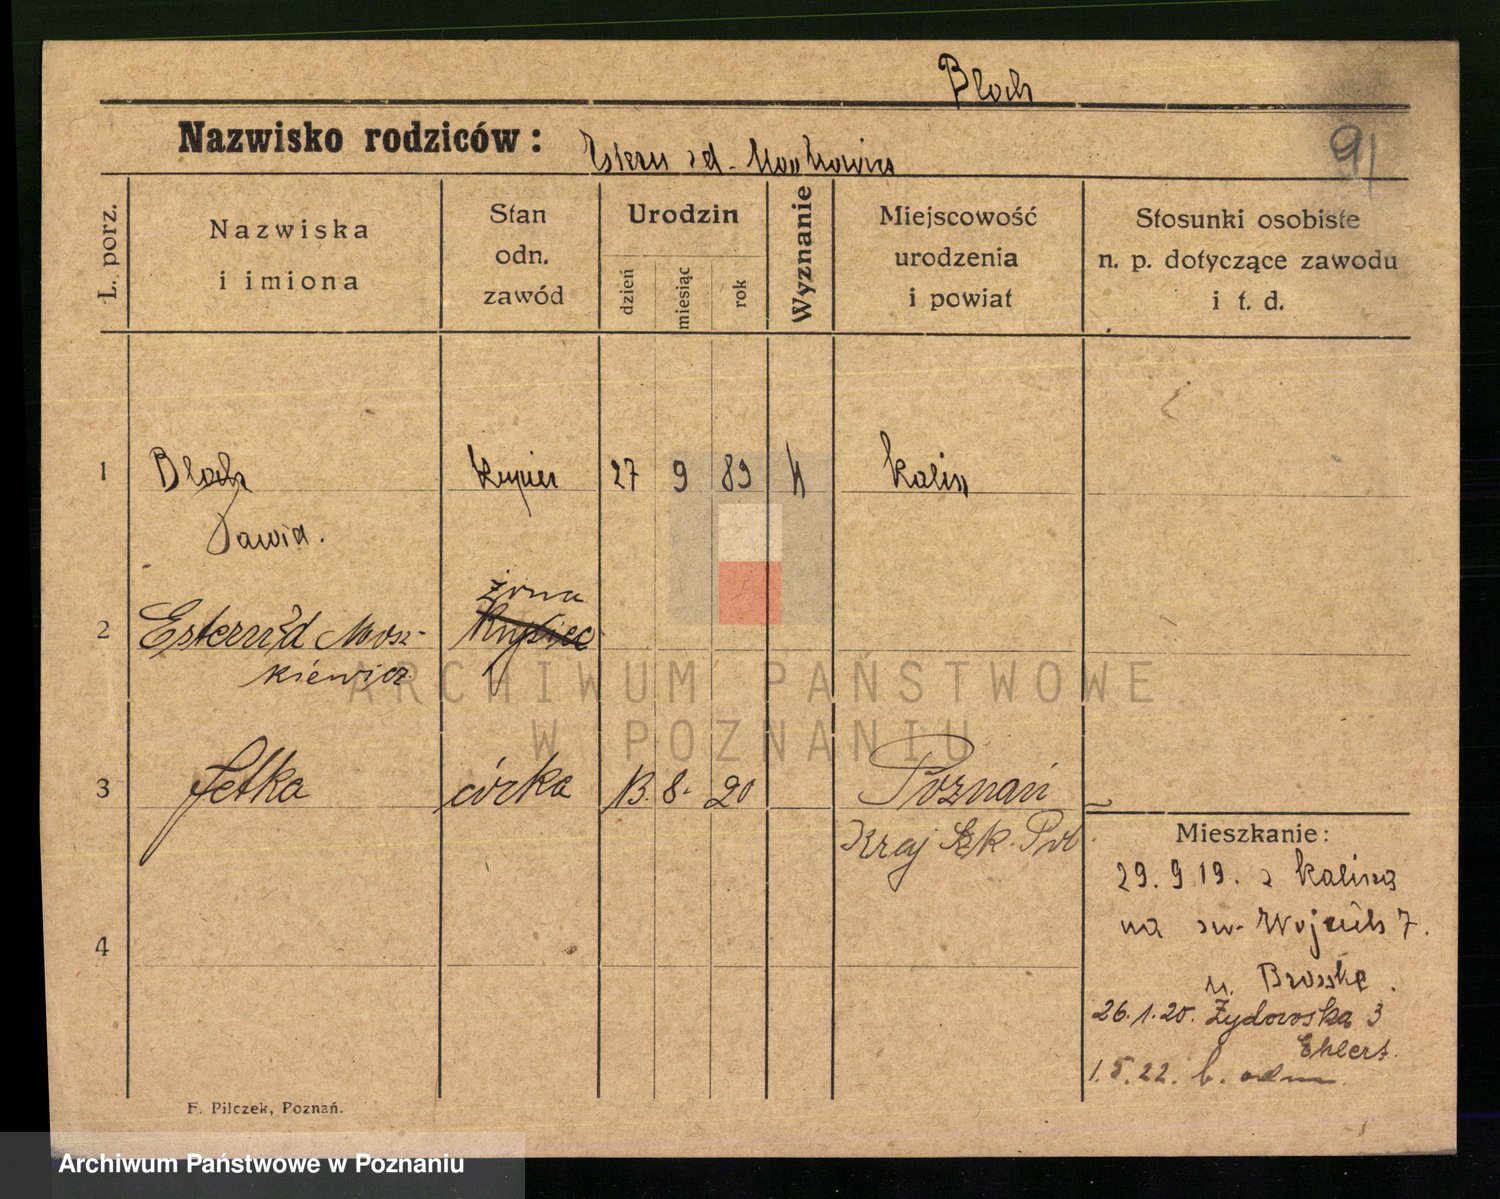 Bloch
Nazwisko rodziców:
91
L. porz.
Nazwiska
i imiona
Stan
odn.
zawód
Urodzin
dzień
miesiąc
rok
Wyznanie
Miejscowość
urodzenia
i powiat
Stosunki osobiste
n. p. dotyczące zawodu
i t. d.
1
Bloch
Dawid.
kupiec
27
9
89
Kalisz
2
Estera
Mosz-
kiewicz
żona
kupiec
3
Jetka
córka
13.
8.
20
Poznań
Kraj
Mieszkanie:
29. 9 19. z Kalisza
na św. Wojciech 7.
u.
26.1.20. Żydowska 3
Ehlert.
1.5.22. b. odm
4
F. Pilczek, Poznań.
ARCHIWUM PAŃSTWOWE
W POZNANIU
Archiwum Państwowe w Poznaniu